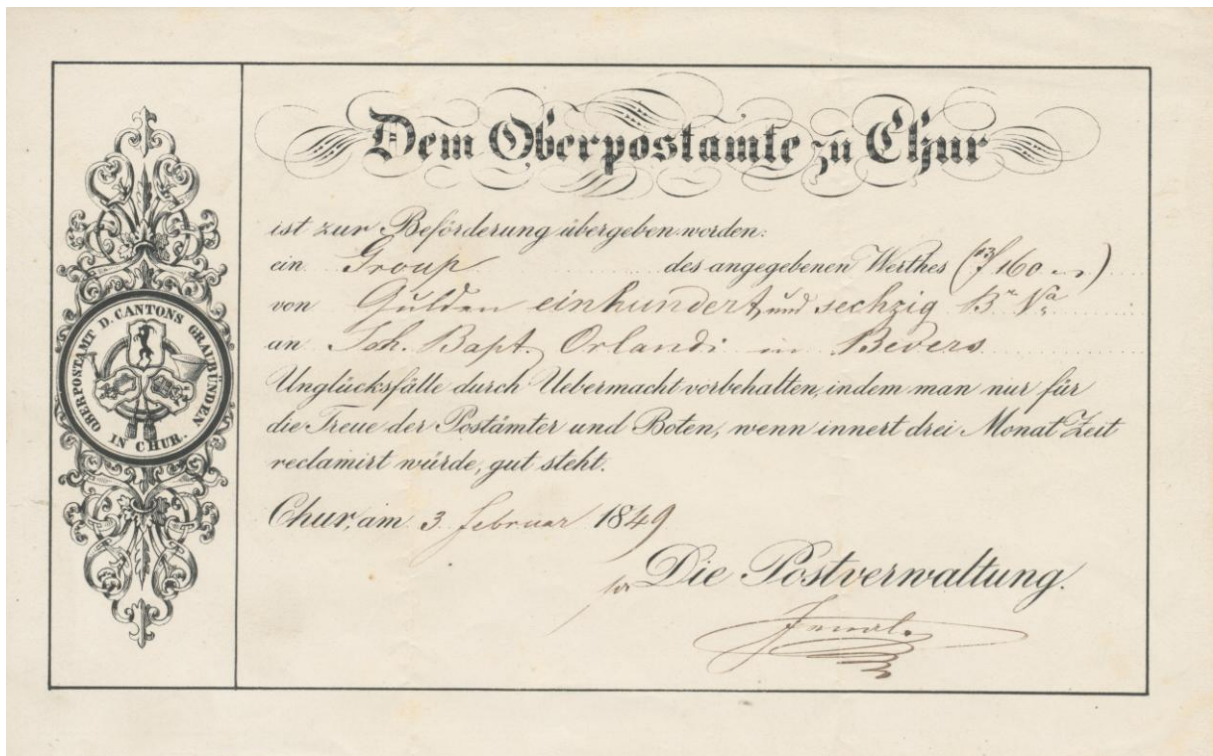 OBERPOSTAMT D. CANTONS GRAUBÜNDEN
IN CHUR.
Dem Oberpostamte zu Chur
ist zur Beförderung übergeben worden:
ein Group des angegebenen Werthes (f 160 –)
von Gulden einhundert und sechzig Br. Va.
an Joh. Bapt. Orlandi in Bevers
Unglücksfälle durch Uebermacht vorbehalten, indem man nur für
die Treue der Postämter und Boten, wenn innert drei Monat Zeit
reclamirt würde, gut steht.
Chur, am 3. Februar 1849
Die Postverwaltung.